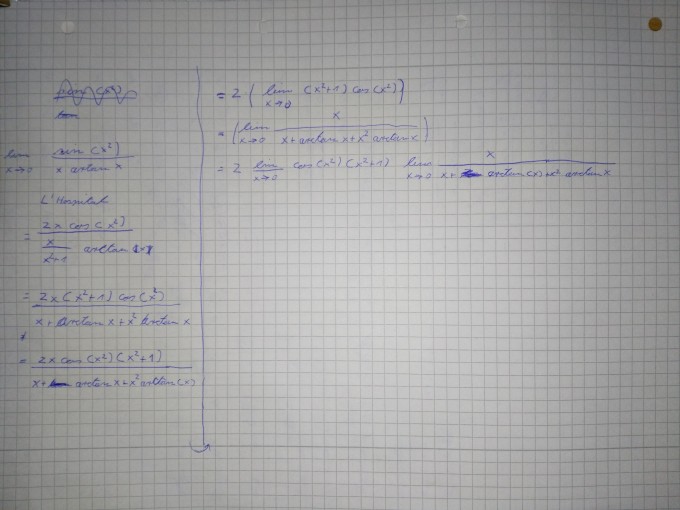 lim x→0 sin(x²) / x arctan x
L'Hospital
= 2x cos(x²) / x/x²+1 arctan x
= 2x(x²+1) cos(x²) / x + arctan x + x² arctan x
= 2x cos(x²)(x²+1) / x + arctan x + x² arctan(x)
= 2 ( lim x→0 (x²+1) cos(x²) )
= ( lim x→0 x / x + arctan x + x² arctan x )
= 2 lim x→0 cos(x²)(x²+1) lim x→0 x / x + arctan(x) + x² arctan x